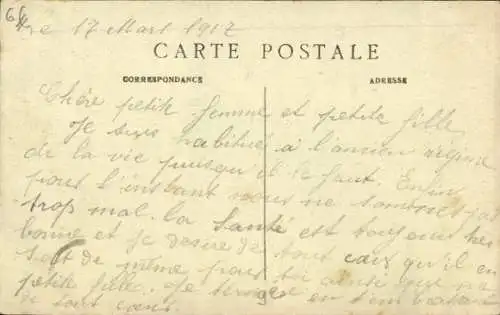 le 17 Mars 1917
CARTE POSTALE
CORRESPONDANCE
ADRESSE
Chère petite femme et petite fille
Je suis habitué à l'ancien régime
de la vie puisqu'il le faut. Enfin
pour l'instant nous ne sommes pas
trop mal. la Santé est toujours très
bonne et Je désire de tout qu'il en
soit de même pour toi ainsi que ma
petite fille. Je termine en
de tout cœur.